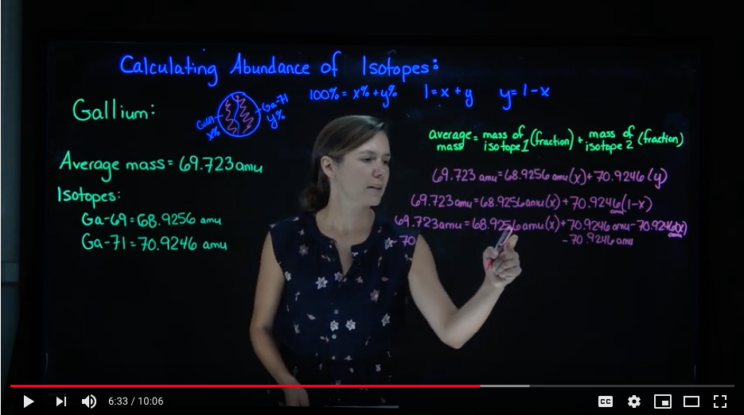 Calculating Abundance of Isotopes:
100% = x% + y% 1 = x + y y = 1 - x
Gallium:
Ga-71
y%
x%
average mass = mass of isotope 1 (fraction) + mass of isotope 2 (fraction)
Average mass = 69.723 amu
69.723 amu = 68.9256 amu (x) + 70.9246 (y)
Isotopes:
69.723 amu = 68.9256 amu (x) + 70.9246 amu (1-x)
Ga-69 = 68.9256 amu
69.723 amu = 68.9256 amu (x) + 70.9246 amu - 70.9246 amu (x)
Ga-71 = 70.9246 amu
-70
- 70.9246 amu
6:33 / 10:06
CC